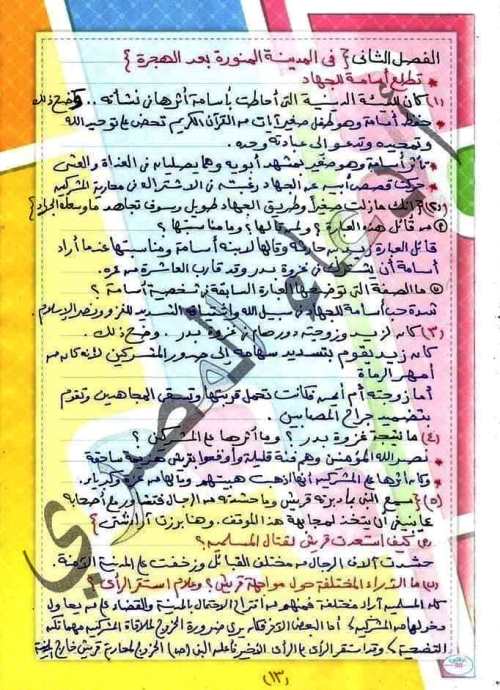 الفصل الثانى { فى المدينة المنورة بعد الهجرة }
* تطلع أسامة للجهاد
(١) كان للبيئة الدينية التى أحاطت بأسامة أثرها فى نشأته .. وضح ذلك
* حفظ أسامة وهو طفل صغير آيات من القرآن الكريم تحض على توحيد الله
وتمجيده وتدعو إلى عبادته وحده
* تأثر أسامة وهو صغير بمشهد أبويه وهما يصليان فى الغداة والعشى
* حركت قصص أبيه عن الجهاد رغبته فى الاشتراك فى محاربة المشركين
(٢) { إنك مازلت صغيراً وطريق الجهاد طويل وسوف تجاهد ما وسعك الجهاد }
من قائل هذه العبارة ؟ ولمن قالها ؟ وما مناسبتها ؟
قائل العبارة زيد بن حارثة وقالها لابنه أسامة ومناسبتها عندما أراد
أسامة أن يشترك فى غزوة بدر وقد قارب العاشرة من عمره.
ما الصفة التى توضحها العبارة السابقة فى شخصية أسامة ؟
شدة حب أسامة للجهاد فى سبيل الله واشتياقه الشديد للغزو ونصر الإسلام .
(٣) كان لزيد وزوجته دور هام فى غزوة بدر . وضح ذلك .
كان زيد يقوم بتسديد سهامه إلى صدور المشركين لأنه كان من
أمهر الرماة
أما زوجته أم أيمن فكانت تحمل قربتها وتسقى المجاهدين وتقوم
بتضميد جراح المصابين
(٤) ما نتيجة غزوة بدر ؟ وما أثرها على المشركين ؟
* نصر الله المؤمنين وهم فئة قليلة وأوقعوا بقريش هزيمة ساحقة
* وكان أثرها على المشركين أنها أذهبت هيبتهم ومالهم من عزة وكبرياء.
(٥) { سمع النبى بما دبرته قريش وما حشدته من الرجال فتشاور مع أصحابه
فيما ينبغى أن يتخذ لمجابهة هذا الموقف . وهنا برزت آراء شتى }
كيف استعدت قريش لقتال المسلمين؟
حشدت آلاف الرجال من مختلف القبائل وزحفت على المدينة الآمنة.
ما الآراء المختلفة حول مواجهة قريش ؟ وعلام استقر الرأى ؟
كان للمسلمين آراء مختلفة فمنهم من اقترح الاحتماء بالمدينة والقضاء على من يحاول
دخولها من المشركين ، أما البعض الآخر فكان يرى ضرورة الخروج لملاقاة المشركين مهما تكن
التضحية ، وقد استقر الرأى على الرأى الأخير فأعلن النبى (ص) الخروج لمحاربة قريش خارج المدينة
(١٣)
دعاء المصرى